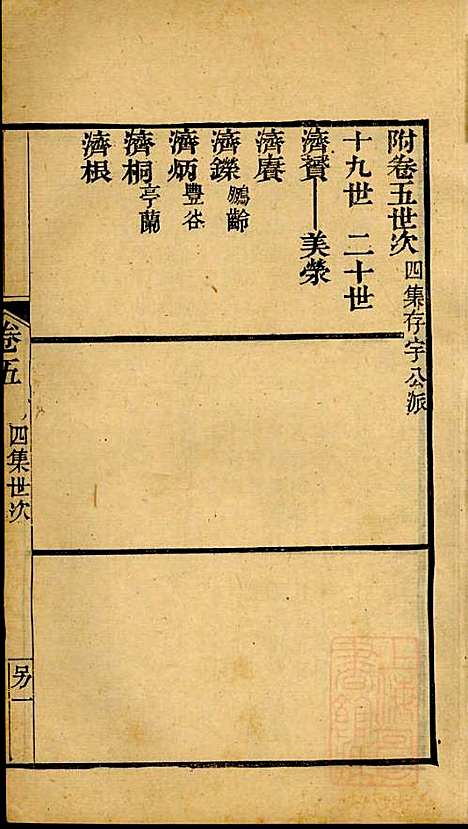 附卷五世次 四集存宇公派
十九世 二十世
濟贇——美榮
濟賡
濟鑠 鵬齡
濟炳 豐谷
濟桐 亭蘭
濟根
卷五 四集世次 另一